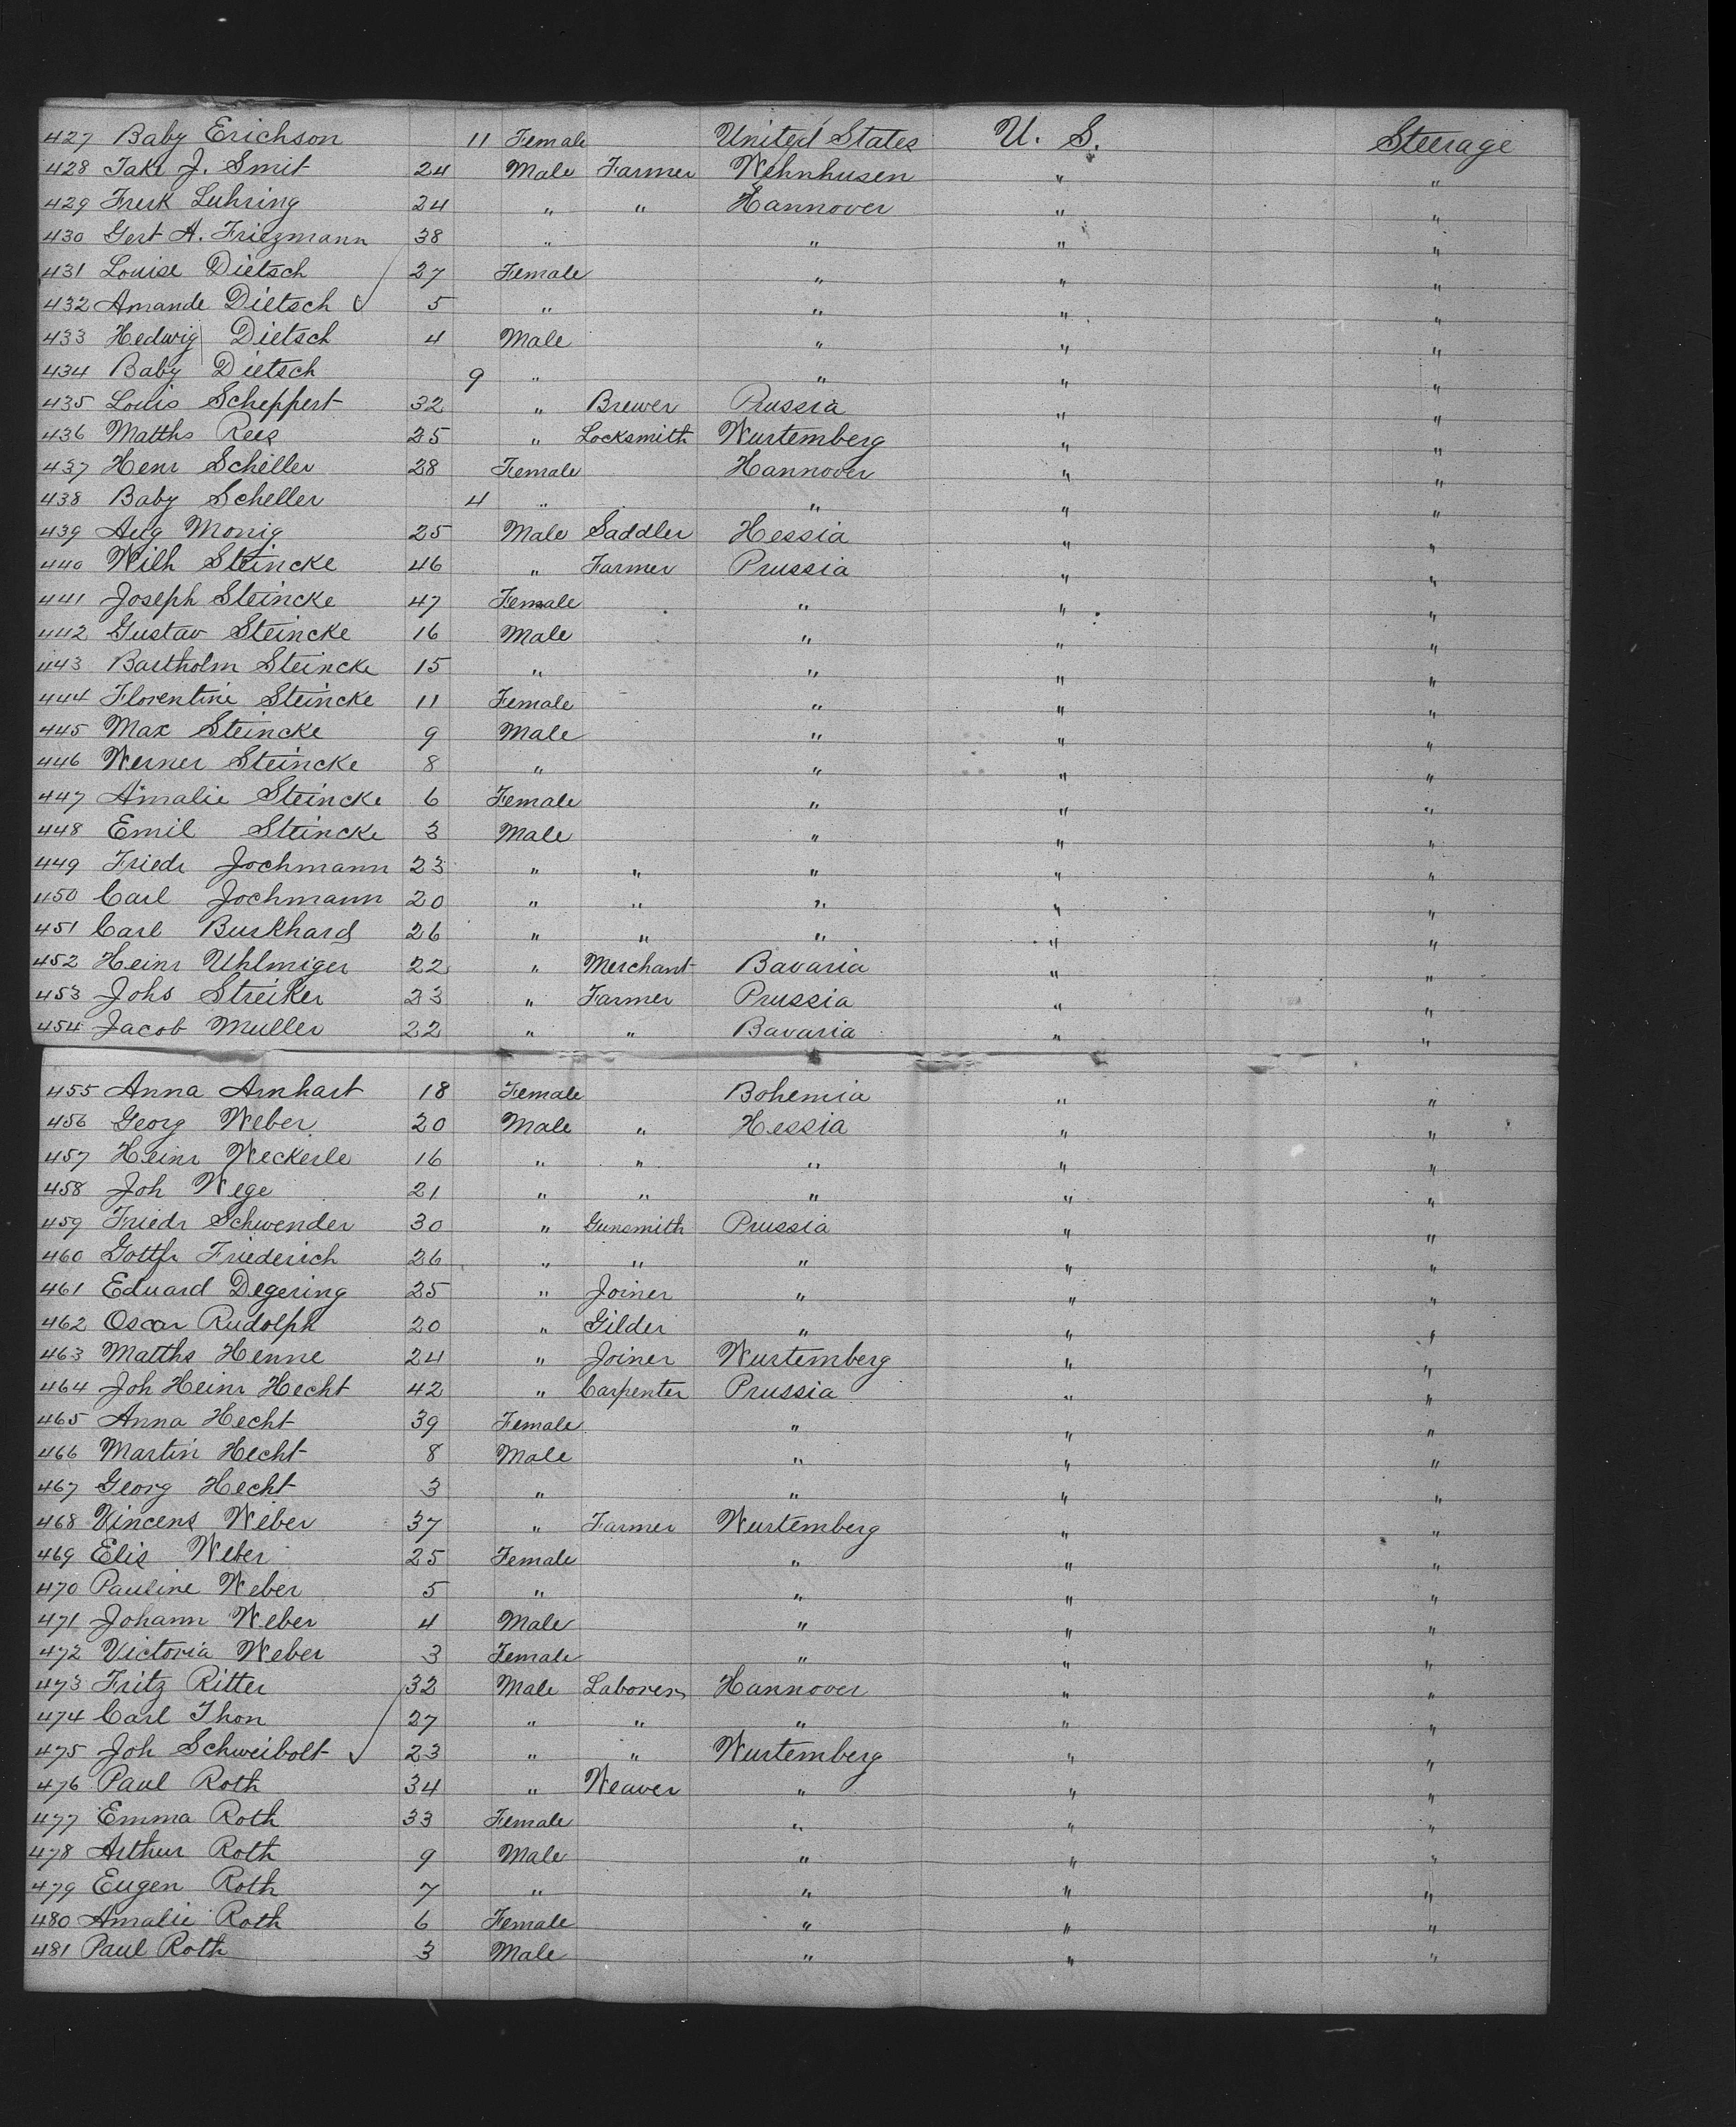 427 Baby Erichson 11 Female United States U. S. Steerage
428 Take J. Smit 24 Male Farmer Wehnhusen " "
429 Frerk Luhring 24 " " Hannover " "
430 Gert A. Friezmann 38 " " " "
431 Louise Dietsch 27 Female " " "
432 Amande Dietsch ✓ 5 " " " "
433 Hedwig Dietsch 4 Male " " "
434 Baby Dietsch 9 " " " "
435 Louis Scheppert 32 " Brewer Prussia " "
436 Matths Rees 25 " Locksmith Wurtemberg " "
437 Henr Scheller 28 Female Hannover " "
438 Baby Scheller 4 " " " "
439 Aug Monig 25 Male Saddler Hessia " "
440 Wilh Steincke 46 " Farmer Prussia " "
441 Joseph Steincke 47 Female " " "
442 Gustav Steincke 16 Male " " "
443 Bartholm Steincke 15 " " " "
444 Florentine Steincke 11 Female " " "
445 Max Steincke 9 Male " " "
446 Werner Steincke 8 " " " "
447 Amalie Steincke 6 Female " " "
448 Emil Steincke 3 Male " " "
449 Friedr Jochmann 23 " " " " "
450 Carl Jochmann 20 " " " " "
451 Carl Burkhard 26 " " " " "
452 Heinr Uhlmiger 22 " Merchant Bavaria " "
453 Johs Streiker 23 " Farmer Prussia " "
454 Jacob Muller 22 " " Bavaria " "
455 Anna Arnhart 18 Female Bohemia " "
456 Georg Weber 20 Male " Hessia " "
457 Heinr Weckerle 16 " " " " "
458 Joh Wege 21 " " " " "
459 Friedr Schwender 30 " Gunsmith Prussia " "
460 Gottfr Friederich 26 " " " " "
461 Eduard Degering 25 " Joiner " " "
462 Oscar Rudolph 20 " Gilder " " "
463 Matths Henne 24 " Joiner Wurtemberg " "
464 Joh Heinr Hecht 42 " Carpenter Prussia " "
465 Anna Hecht 39 Female " " "
466 Martin Hecht 8 Male " " "
467 Georg Hecht 3 " " " "
468 Vincens Weber 37 " Farmer Wurtemberg " "
469 Elis Weber 25 Female " " "
470 Pauline Weber 5 " " " "
471 Johann Weber 4 Male " " "
472 Victoria Weber 3 Female " " "
473 Fritz Ritter 32 Male Laborer Hannover " "
474 Carl Thon 27 " " " " "
475 Joh Schweibolt ✓ 23 " " Wurtemberg " "
476 Paul Roth 34 " Weaver " " "
477 Emma Roth 33 Female " " "
478 Arthur Roth 9 Male " " "
479 Eugen Roth 7 " " " "
480 Amalie Roth 6 Female " " "
481 Paul Roth 3 Male " " "